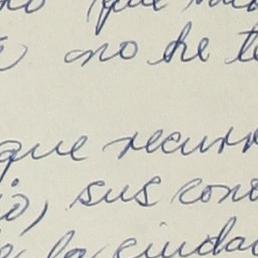 que
no he te
que recurr
io, sus cono
a la ciudad